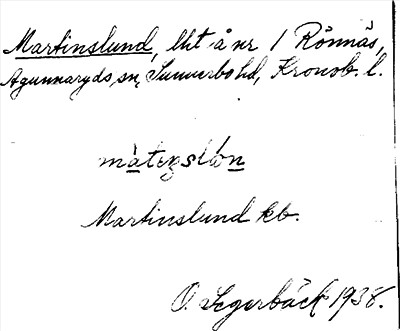 Martinslund, lht å nr 1 Rönnäs,
Agunnaryds sn, Sunnerbo hd, Kronob. l.
Martinslund kb.
O. Segerbäck 1938.